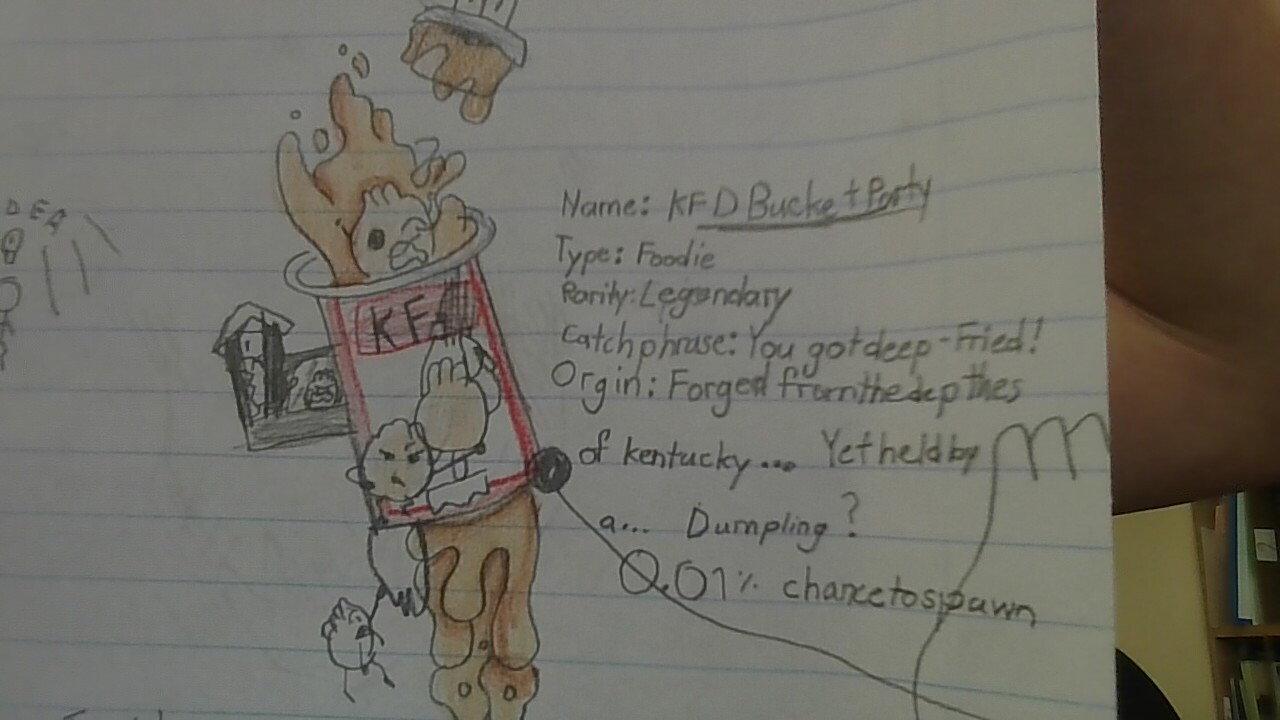 DEA
KF
Name: KFD Bucket Party
Type: Foodie
Rarity: Legendary
Catchphrase: You got deep-Fried!
Orgin: Forged from the depthes
of kentucky... Yet held by
a... Dumpling?
0.01% chance to spawn